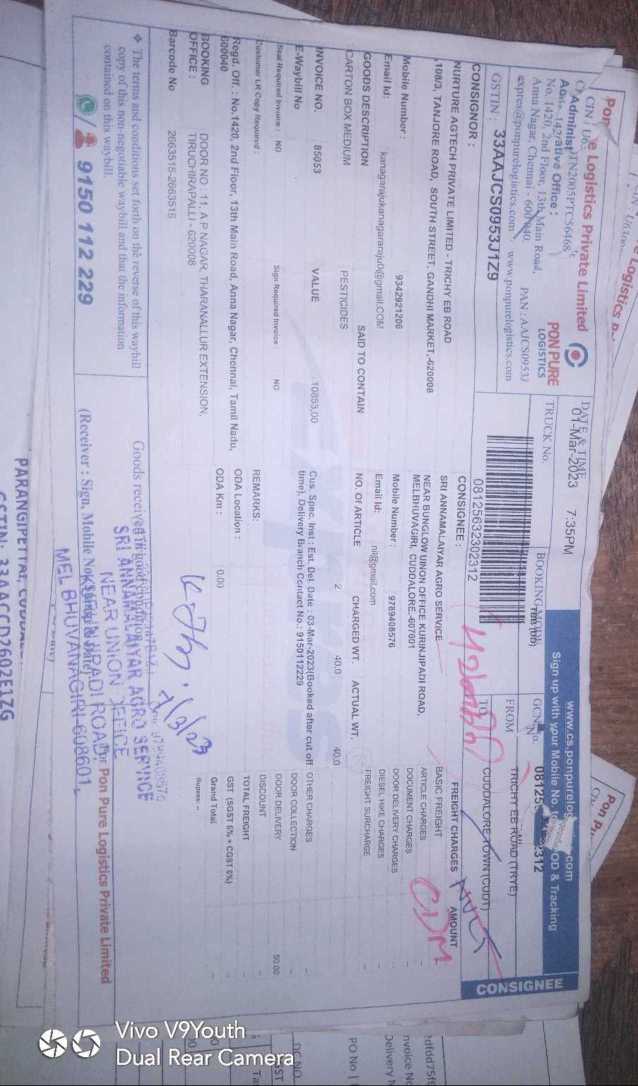 Pon Pure Logistics Private Limited
PON PURE
LOGISTICS
Administrative Office :
No. 1420, 2nd Floor, 13th Main Road,
Anna Nagar, Chennai - 600040.
PAN : AAJCS0953J
express@ponpurelogistics.com www.ponpurelogistics.com
GSTIN : 33AAJCS0953J1Z9
DATE & TIME
01-Mar-2023 7:35PM
TRUCK No.
08125632302312
www.cs.ponpurelog .com
Sign up with your Mobile No. OD & Tracking
FROM TRICHY EB ROAD (TRYE)
TO CUDDALORE TOWN(CUDT)
CONSIGNEE
CONSIGNOR :
NURTURE AGTECH PRIVATE LIMITED - TRICHY EB ROAD
108/3, TANJORE ROAD, SOUTH STREET, GANDHI MARKET,-620008
Mobile Number : 9342921206
Email Id: kanagarajukanagararaju0@gmail.COM
CONSIGNEE :
SRI ANNAMALAIYAR AGRO SERVICE
NEAR BUNGLOW UINON OFFICE KURINJIPADI ROAD,
MELBHUVAGIRI, CUDDALORE.-607601
Mobile Number : 9789408576
Email Id: nil@gmail.com
GOODS DESCRIPTION SAID TO CONTAIN NO. OF ARTICLE CHARGED WT. ACTUAL WT.
CARTON BOX MEDIUM PESTICIDES 2 40.0 40.0
INVOICE NO. 85053 VALUE 10855.00
E-Waybill No
Cus. Spec. Inst : Est. Del. Date : 03-Mar-2023(Booked after cut off
time), Delivery Branch Contact No.: 9150112229
Seal Required Invoice : NO Sign Required Invoice : NO
Customer LR Copy Required :
REMARKS:
Regd. Off. : No.1420, 2nd Floor, 13th Main Road, Anna Nagar, Chennai, Tamil Nadu,
600040
ODA Location :
BOOKING
OFFICE :
DOOR NO : 11, A P NAGAR, THARANALLUR EXTENSION,
TIRUCHIRAPALLI - 620008
ODA Km : 0.00
Barcode No 2663515-2663516
FREIGHT CHARGES AMOUNT
BASIC FREIGHT
ARTICLE CHARGES
DOCUMENT CHARGES
DOOR DELIVERY CHARGES
DIESEL HIKE CHARGES
FREIGHT SURCHARGE
OTHER CHARGES
DOOR COLLECTION
DOOR DELIVERY 50.00
DISCOUNT
TOTAL FREIGHT
GST (SGST 6% + CGST 6%)
Grand Total
Rupees: --
❖ The terms and conditions set forth on the reverse of this waybill
copy of this non-negotiable waybill and that the information
contained on this waybill.
9150 112 229
Goods received
(Receiver : Sign, Mobile No
For Pon Pure Logistics Private Limited
SRI ANNAMALAIYAR AGRO SERVICE
NEAR UNION OFFICE
MEL BHUVANAGIRI-608601.
7/3/23
PARANGIPETTAI, CUDDAL
GSTIN: 33AACCD2602E1ZG
PO No
Vivo V9Youth
Dual Rear Camera